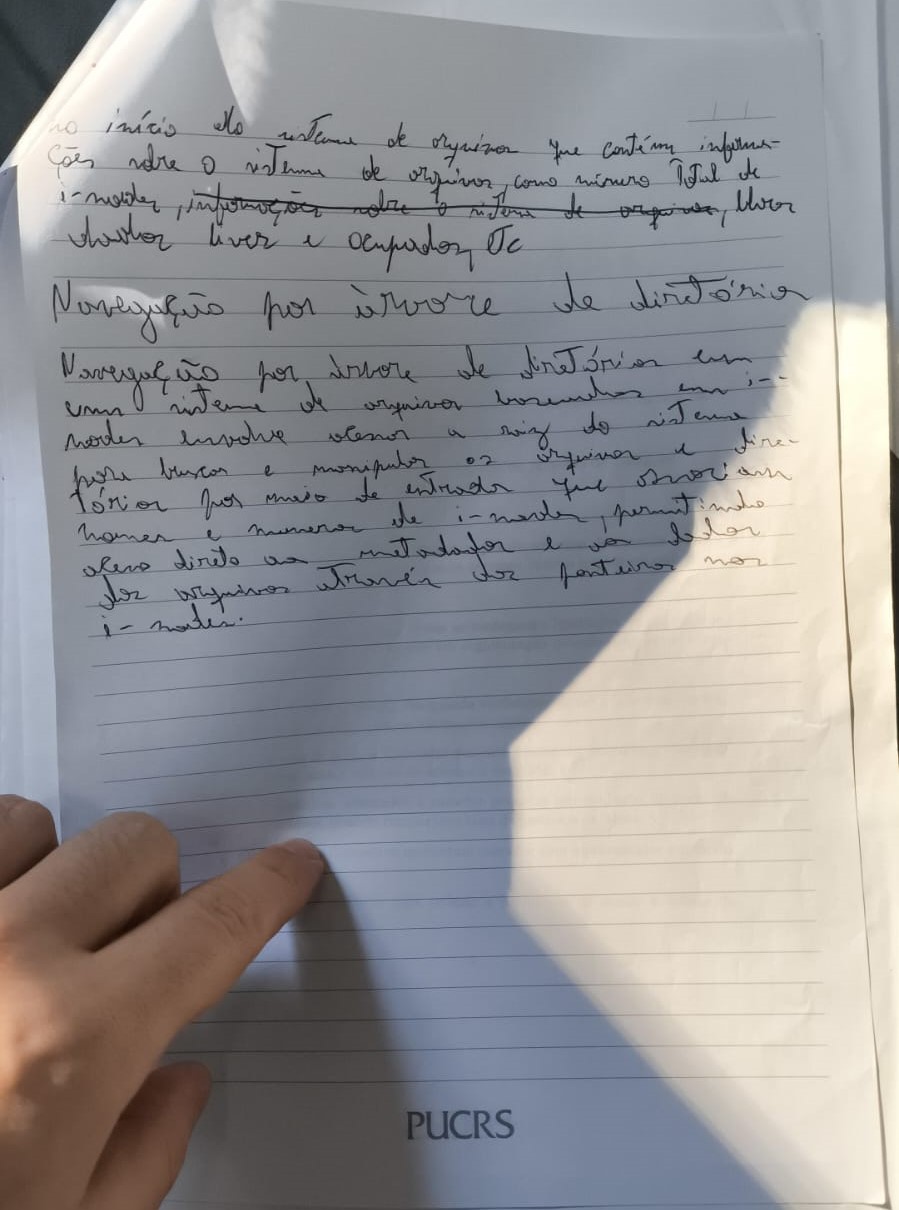 no início do sistema de arquivos que contém informa-
ções sobre o sistema de arquivos, como número total de
i-nodes, informações sobre o sistema de arquivos, blocos
livres e ocupados, etc
Navegação por árvore de diretórios
Navegação por árvore de diretórios em
um sistema de arquivos baseados em i-
nodes envolve acessar a raiz do sistema
para buscar e manipular os arquivos e dire-
tórios por meio de entradas que associam
nomes e numeros de i-nodes, permitindo
acesso direto aos metadados e aos dados
dos arquivos através dos ponteiros nos
i-nodes.
PUCRS